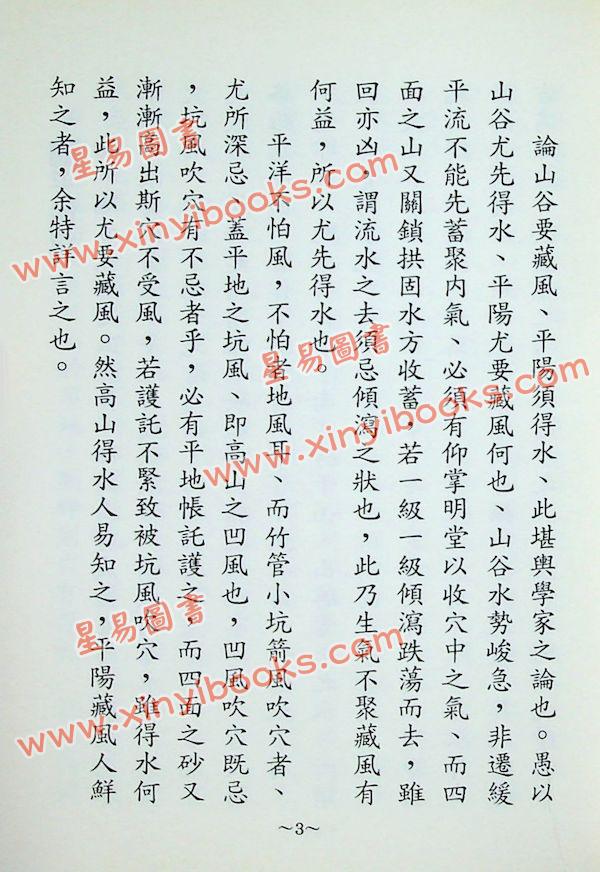 論山谷要藏風、平陽須得水、此堪輿學家之論也。愚以
山谷尤先得水、平陽尤要藏風何也、山谷水勢峻急，非遷緩
平流不能先蓄聚內氣、必須有仰掌明堂以收穴中之氣、而四
面之山又關鎖拱固水方收蓄，若一級一級傾瀉跌蕩而去，雖
回亦凶，謂流水之去須忌傾瀉之狀也，此乃生氣不聚藏風有
何益，所以尤先得水也。
平洋不怕風，不怕者地風耳、而竹管小坑箭風吹穴者、
尤所深忌、蓋平地之坑風、即高山之凹風也，凹風吹穴既忌
，坑風吹穴有不忌者乎，必有平地帳託護之，而四面之砂又
漸漸高出斯穴不受風，若護託不緊致被坑風吹穴，雖得水何
益，此所以尤要藏風。然高山得水人易知之，平陽藏風人鮮
知之者，余特詳言之也。
~3~
星易圖書
www.xinyibooks.com
星易圖書
www.xinyibooks.com
星易圖書
www.xinyibooks.com